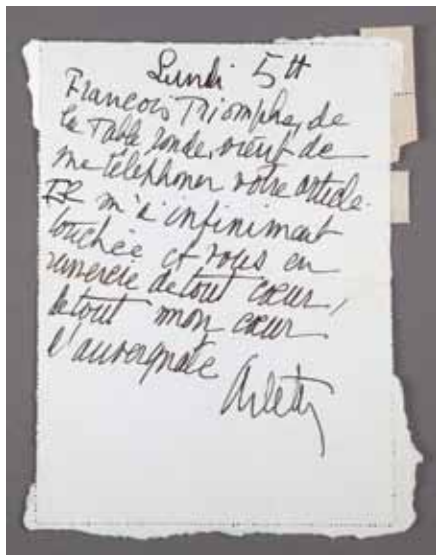 Lundi 5 tt
François Triomphe, de
la Table ronde, vient de
me téléphoner votre article.
Il m'a infiniment
touchée et vous en
remercie de tout cœur,
de tout mon cœur
l'auvergnate
Arletty